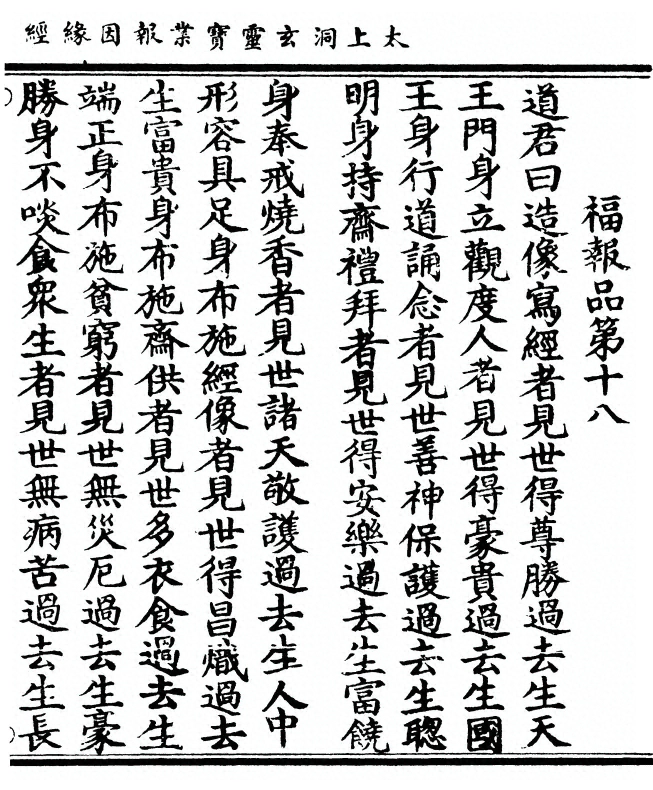 太上洞玄靈寶業報因緣經
福報品第十八
道君曰造像寫經者見世得尊勝過去生天
王門身立觀度人者見世得豪貴過去生國
王身行道誦念者見世善神保護過去生聰
明身持齋禮拜者見世得安樂過去生富饒
身奉戒燒香者見世諸天敬護過去生人中
形容具足身布施經像者見世得昌熾過去
生富貴身布施齋供者見世多衣食過去生
端正身布施貧窮者見世無災厄過去生豪
勝身不啖食衆生者見世無病苦過去生長